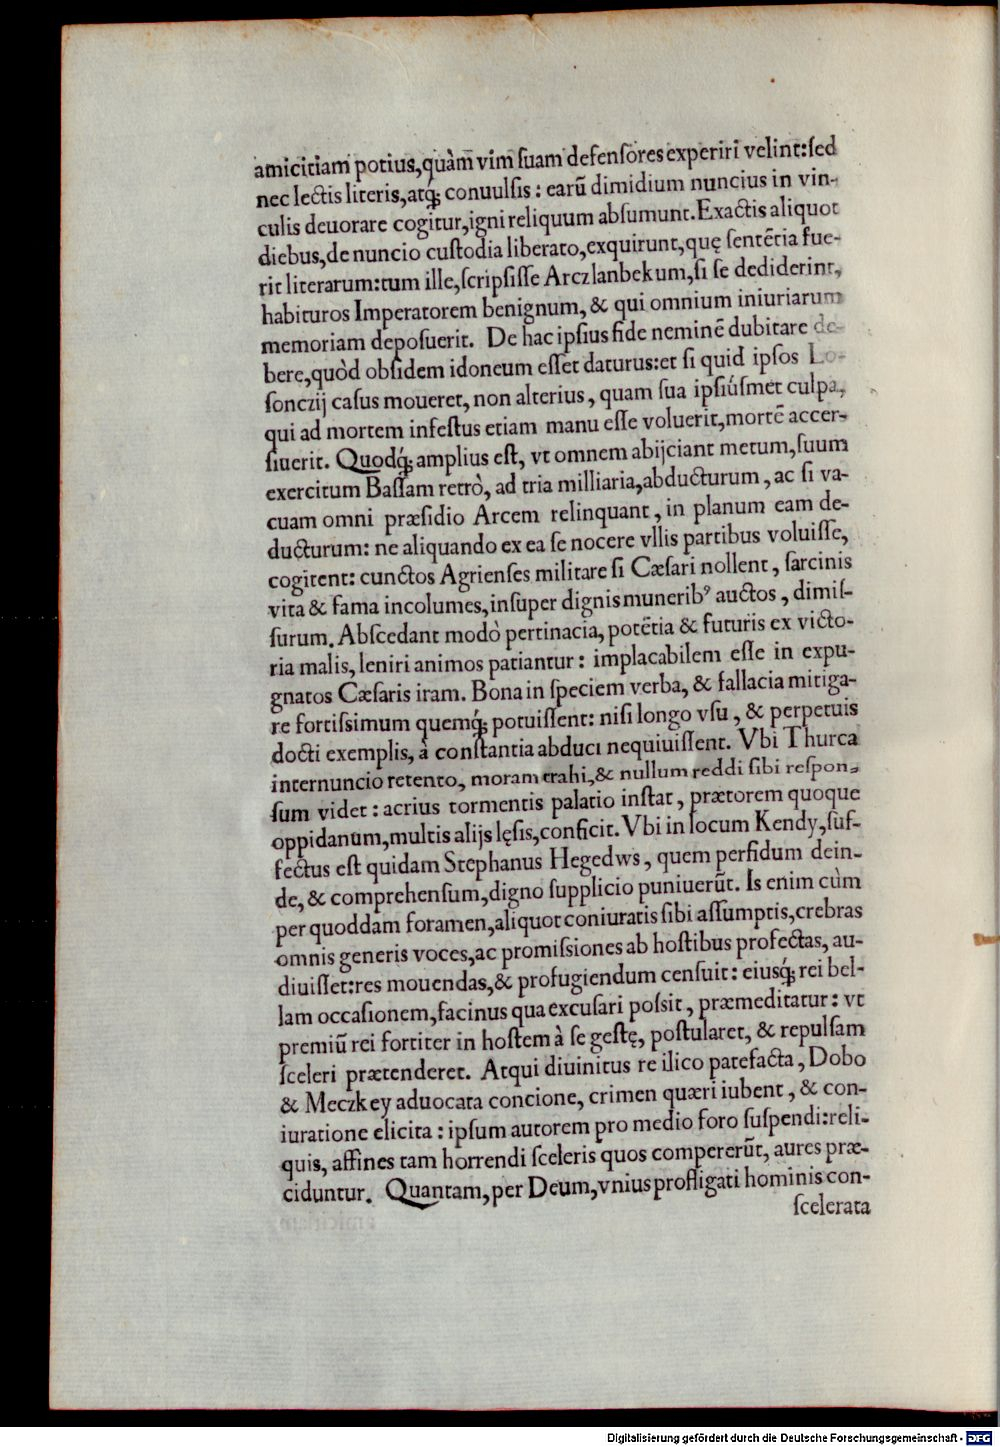 amicitiam potius,quàm vim ſuam defenſores experiri velint:ſed
nec lectis literis,atq́; conuulſis : earū dimidium nuncius in vin-
culis deuorare cogitur,igni reliquum abſumunt.Exactis aliquot
diebus,de nuncio cuſtodia liberato,exquirunt,quę ſentētia fue-
rit literarum:tum ille,ſcripſiſſe Arczlanbekum,ſi ſe dediderint,
habituros Imperatorem benignum, & qui omnium iniuriarum
memoriam depoſuerit. De hac ipſius fide neminē dubitare de-
bere,quòd obſidem idoneum eſſet daturus:et ſi quid ipſos Lo-
ſonczij caſus moueret, non alterius, quam ſua ipſiúſmet culpa,
qui ad mortem infeſtus etiam manu eſſe voluerit,mortē accer-
ſiuerit. Quodq́; amplius eſt, vt omnem abijciant metum,ſuum
exercitum Baſſam retrò, ad tria milliaria,abducturum, ac ſi va-
cuam omni præſidio Arcem relinquant, in planum eam de-
ducturum: ne aliquando ex ea ſe nocere vllis partibus voluiſſe,
cogitent: cunctos Agrienſes militare ſi Cæſari nollent, ſarcinis
vita & fama incolumes,inſuper dignis munerib⁹ auctos, dimiſ-
ſurum. Abſcedant modò pertinacia, potētia & futuris ex victo-
ria malis, leniri animos patiantur: implacabilem eſſe in expu-
gnatos Cæſaris iram. Bona in ſpeciem verba, & fallacia mitiga-
re fortiſsimum quemq́; potuiſſent: niſi longo vſu, & perpetuis
docti exemplis, à conſtantia abduci nequiuiſſent. Vbi Thurca
internuncio retento, moram trahi,& nullum reddi ſibi reſpon-
ſum videt: acrius tormentis palatio inſtat, prætorem quoque
oppidanum,multis alijs lęſis,conficit. Vbi in locum Kendy,ſuf-
fectus eſt quidam Stephanus Hegedws, quem perfidum dein-
de, & comprehenſum,digno ſupplicio puniuerūt. Is enim cùm
per quoddam foramen,aliquot coniuratis ſibi aſſumptis,crebras
omnis generis voces,ac promiſsiones ab hoſtibus profectas, au-
diuiſſet:res mouendas,& profugiendum cenſuit: eiusq́; rei bel-
lam occaſionem,facinus qua excuſari poſsit, præmeditatur: vt
premiū rei fortiter in hoſtem à ſe geſtę, poſtularet, & repulſam
ſceleri prætenderet. Atqui diuinitus re ilico patefacta, Dobo
& Meczkey aduocata concione, crimen quæri iubent, & con-
iuratione elicita: ipſum autorem pro medio foro ſuſpendi:reli-
quis, affines tam horrendi ſceleris quos compererūt, aures præ-
ciduntur. Quantam,per Deum,vnius profligati hominis con-
ſcelerata
Digitalisierung gefördert durch die Deutsche Forschungsgemeinschaft - DFG